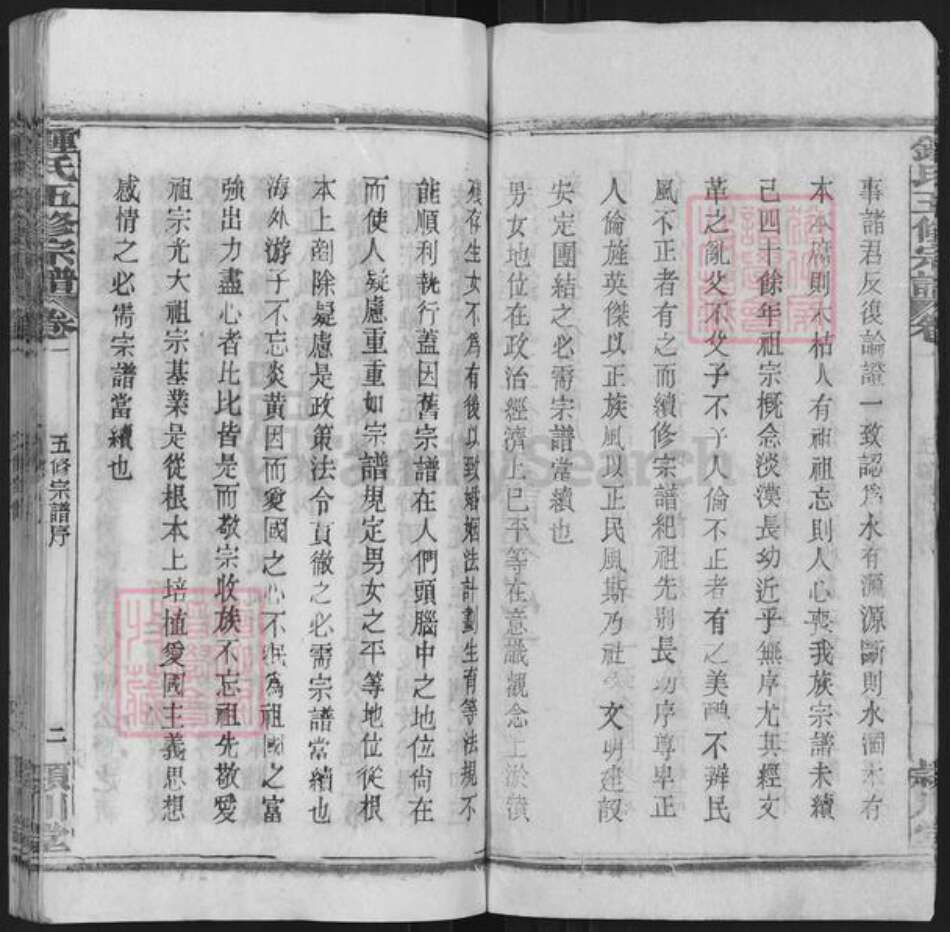 事諸君反復論證一致認為水有源源斷則水涸木有
本本腐則木枯人有祖祖忘則人心喪我族宗譜未續
己四十餘年祖宗概念淡漠長幼近乎無序尤其經文
革之亂父不父子不子人倫不正者有之美醜不辨民
風不正者有之而續修宗譜紀祖先別長幼序尊卑正
人倫旌英傑以正族風以正民風斯乃社會文明建設
安定團結之必需宗譜當續也
男女地位在政治經濟上已平等在意識觀念上淤積
殘存生女不為有後以致婚姻法計劃生育等法規不
能順利執行蓋因舊宗譜在人們頭腦中之地位尚在
而使人疑慮重重如宗譜規定男女之平等地位從根
本上剷除疑慮是政策法令貢徹之必需宗譜當續也
海外游子不忘炎黃因而愛國之心不泯為祖國之富
強出力盡心者比比皆是而敬宗收族不忘祖先敬愛
祖宗光大祖宗基業是從根本上培植愛國主義思想
感情之必需宗譜當續也
鍾氏五修宗譜 卷一
五修宗譜序
二
潁川堂
FamilySearch